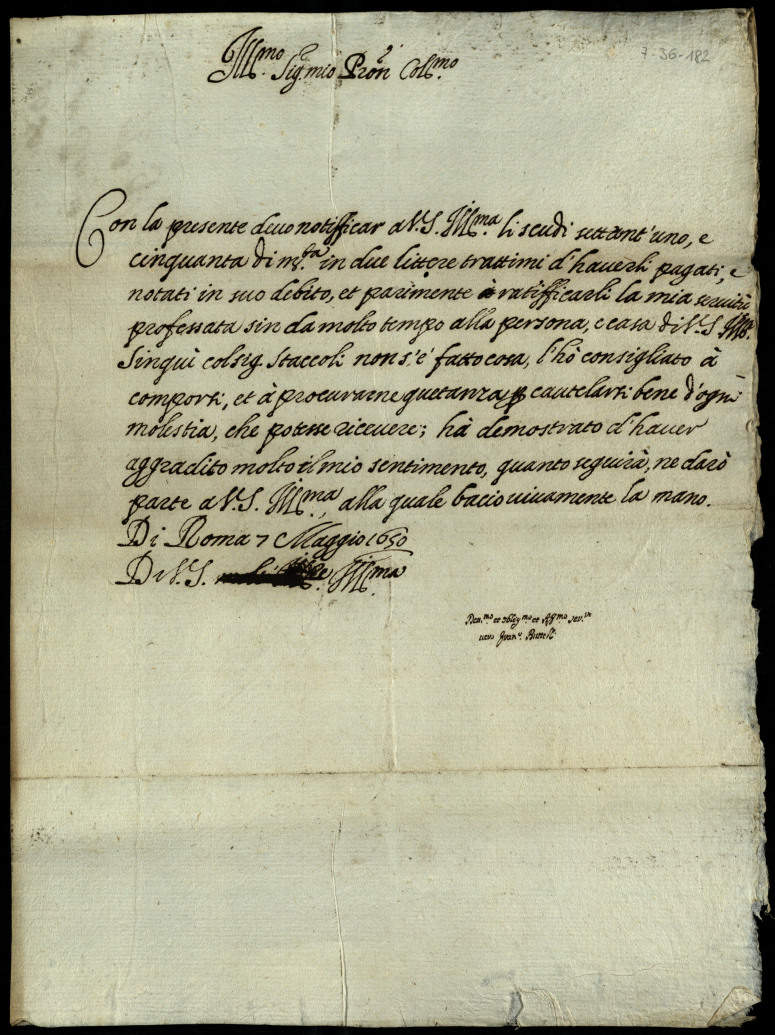 7-36-182
Ill.mo Sig.r mio P'ron Coll.mo
Con la presente devo notifficar à V.S. Ill.ma li scudi settant'uno, e
cinquanta di m.ta in due littere trattimi d'haverli pagati, e
notati in suo debito, et parimente à ratifficarli la mia servitù
professata sin da molto tempo alla persona, e casa di V.S. Ill.ma
Sin quì col sig. Staccoli non s'è fatto cosa, l'hò consigliato à
comporsi, et à procurarne quetanza p cautelarsi bene d'ogni
molestia, che potesse ricevere; hà demostrato d'haver
aggradito molto il mio sentimento, quanto seguirà, ne darò
parte a V.S. Ill.ma, alla quale bacio vivamente la mano.
Di Roma 7 Maggio 1650
Di V.S. Ill.ma
Dev.mo et oblig.mo et Aff.mo ser.re
vero